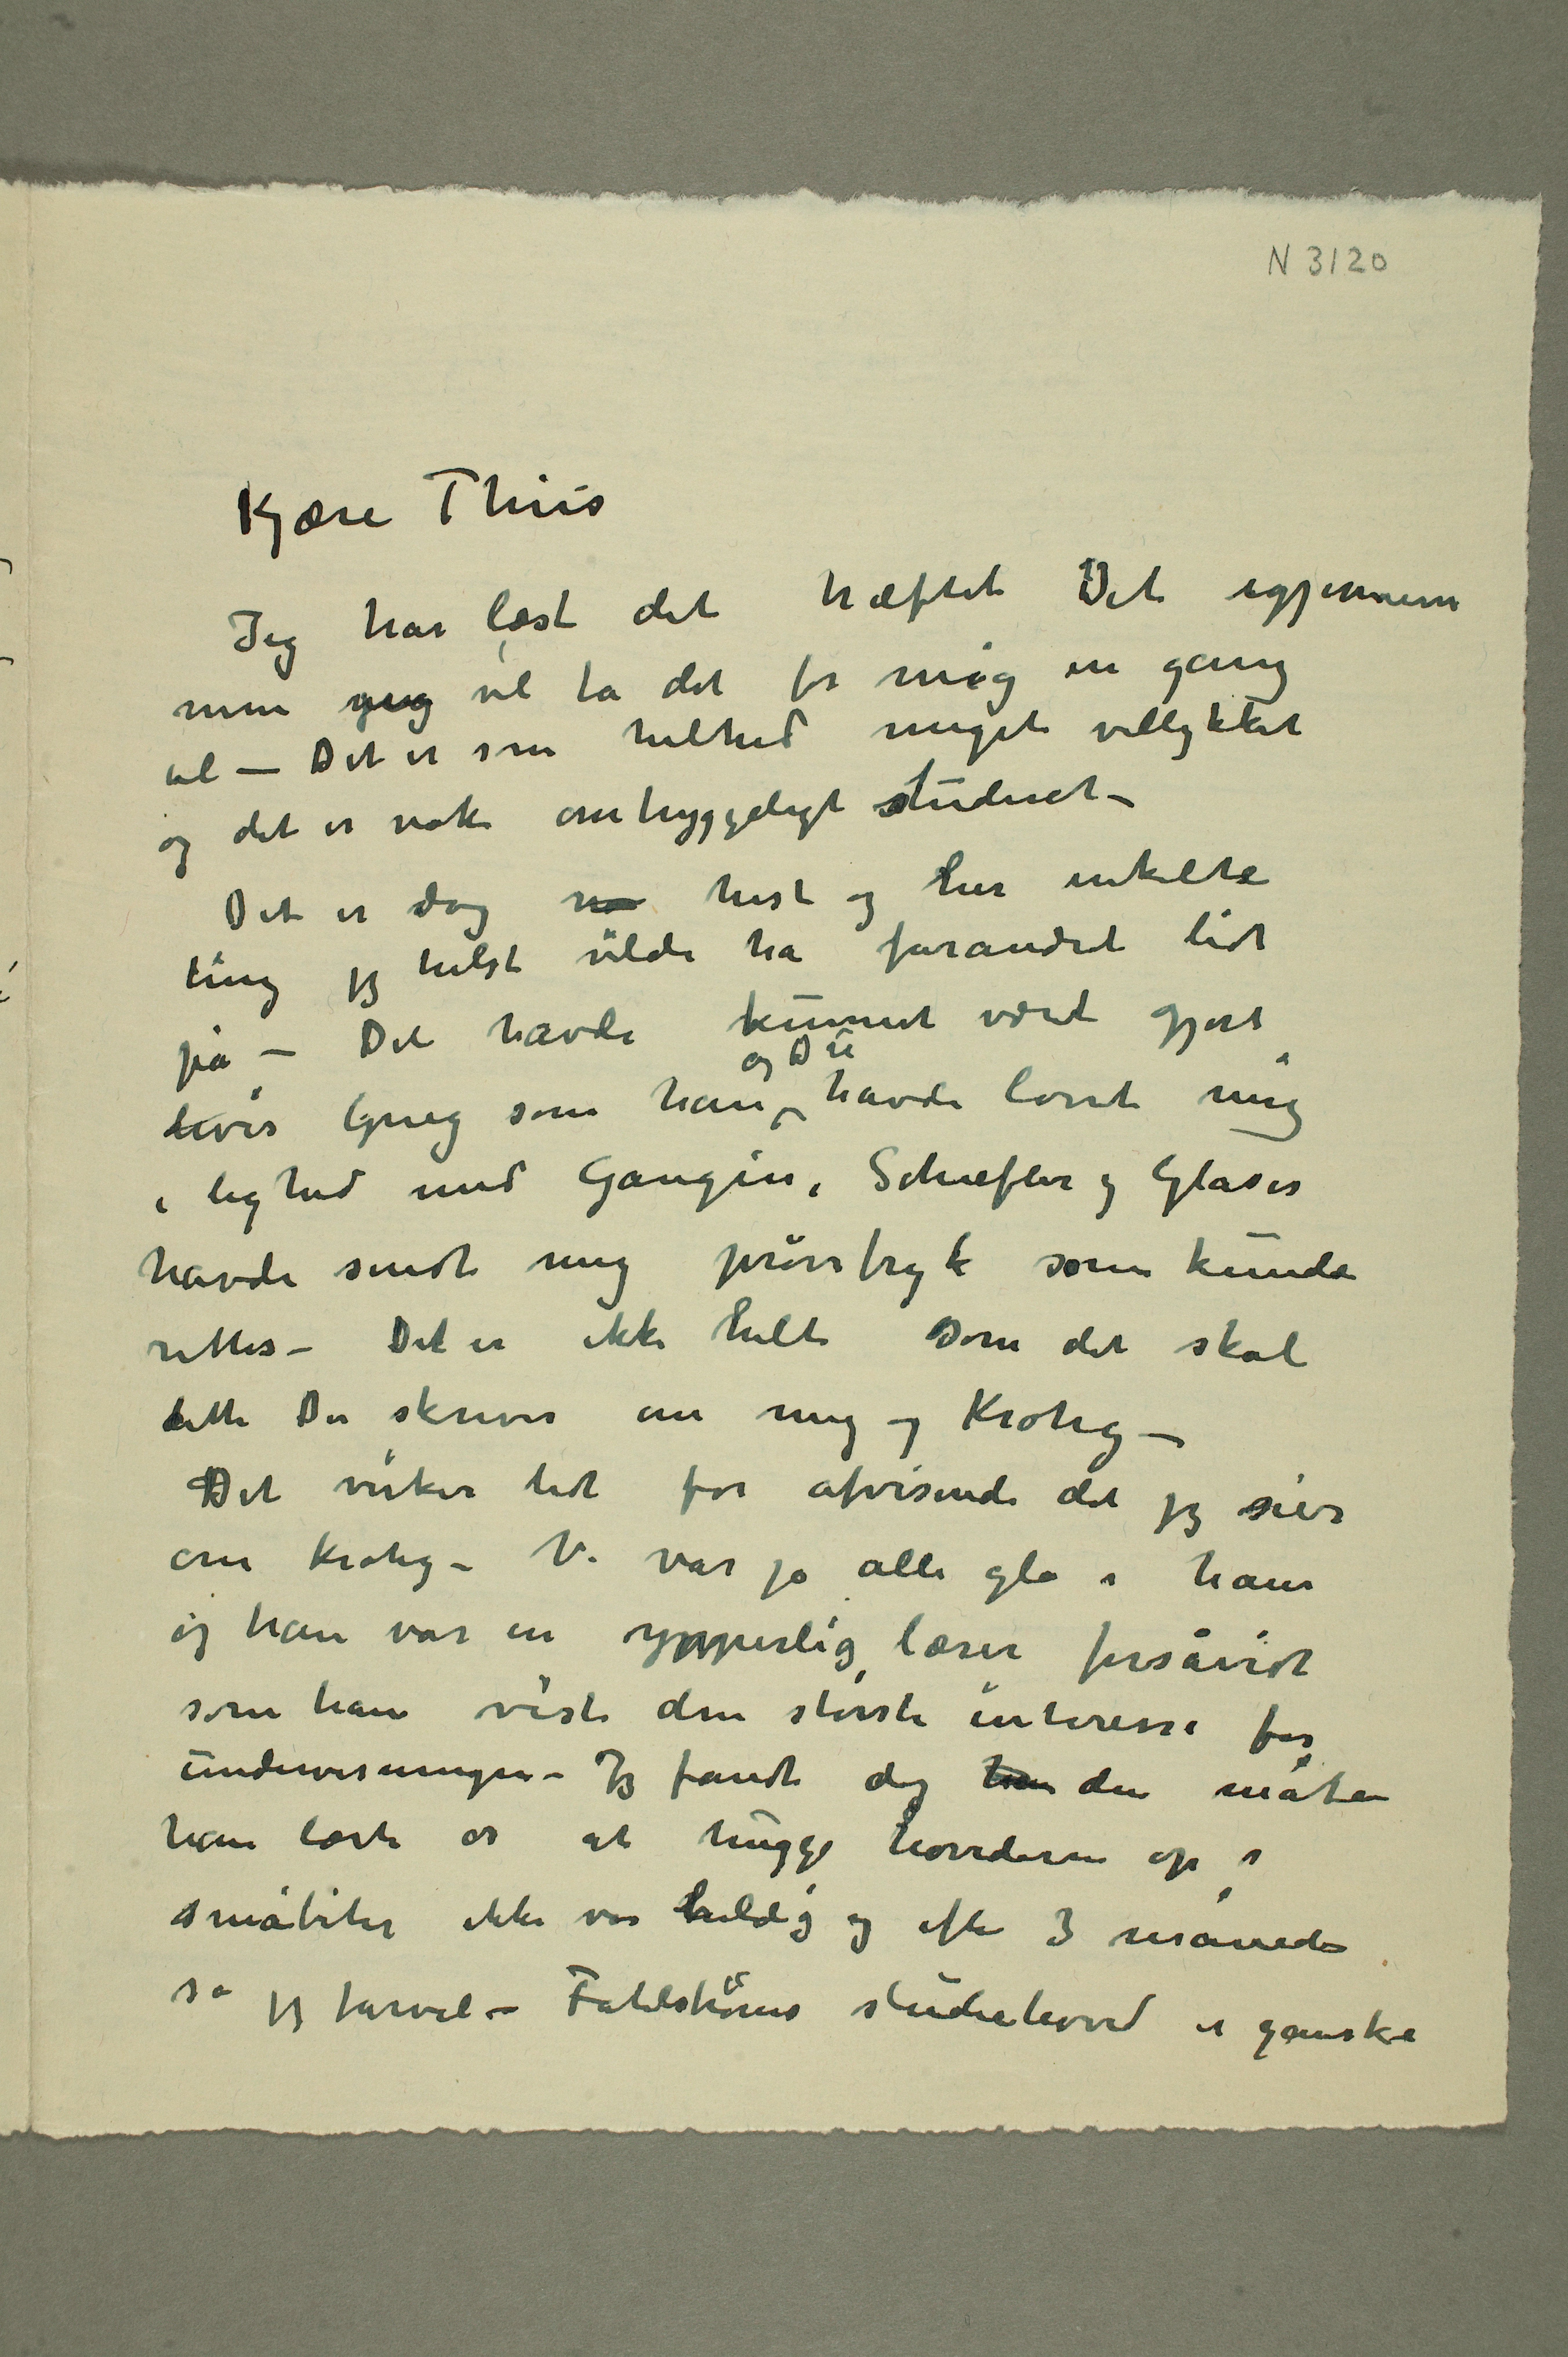 N 3120
Kjære Thiis
Jeg har læst det hæftet Det igjennem
men jeg vil ta det for mig en gang
til – Det er som helhed meget vellykket
og det er nok omhyggeligt studeret –
Det er dog hist og her enkelte
ting jeg helst vilde ha forandret lidt
på – Det havde kunnet været gjort
og Du
hvis Grieg som han havde lovet mig
i lighed med Gaugin, Schiefler og Glaser
havde sendt mig prøvetryk som kunde
rettes – Det er ikke helt som det skal
dette Du skriver om mig og Krohg –
Det virker lidt for afvisende det jeg sier
om Krohg – Vi var jo alle gla i ham
og han var en ypperlig lærer forsåvidt
som han viste den største interesse for
undervisningen – Jeg fandt dog den måten
han lærte os at hugge hoderne op i
småbiter ikke var heldig og efter 3 måneder
sa jeg farvel – Fahlstrøms studiehoved er ganske